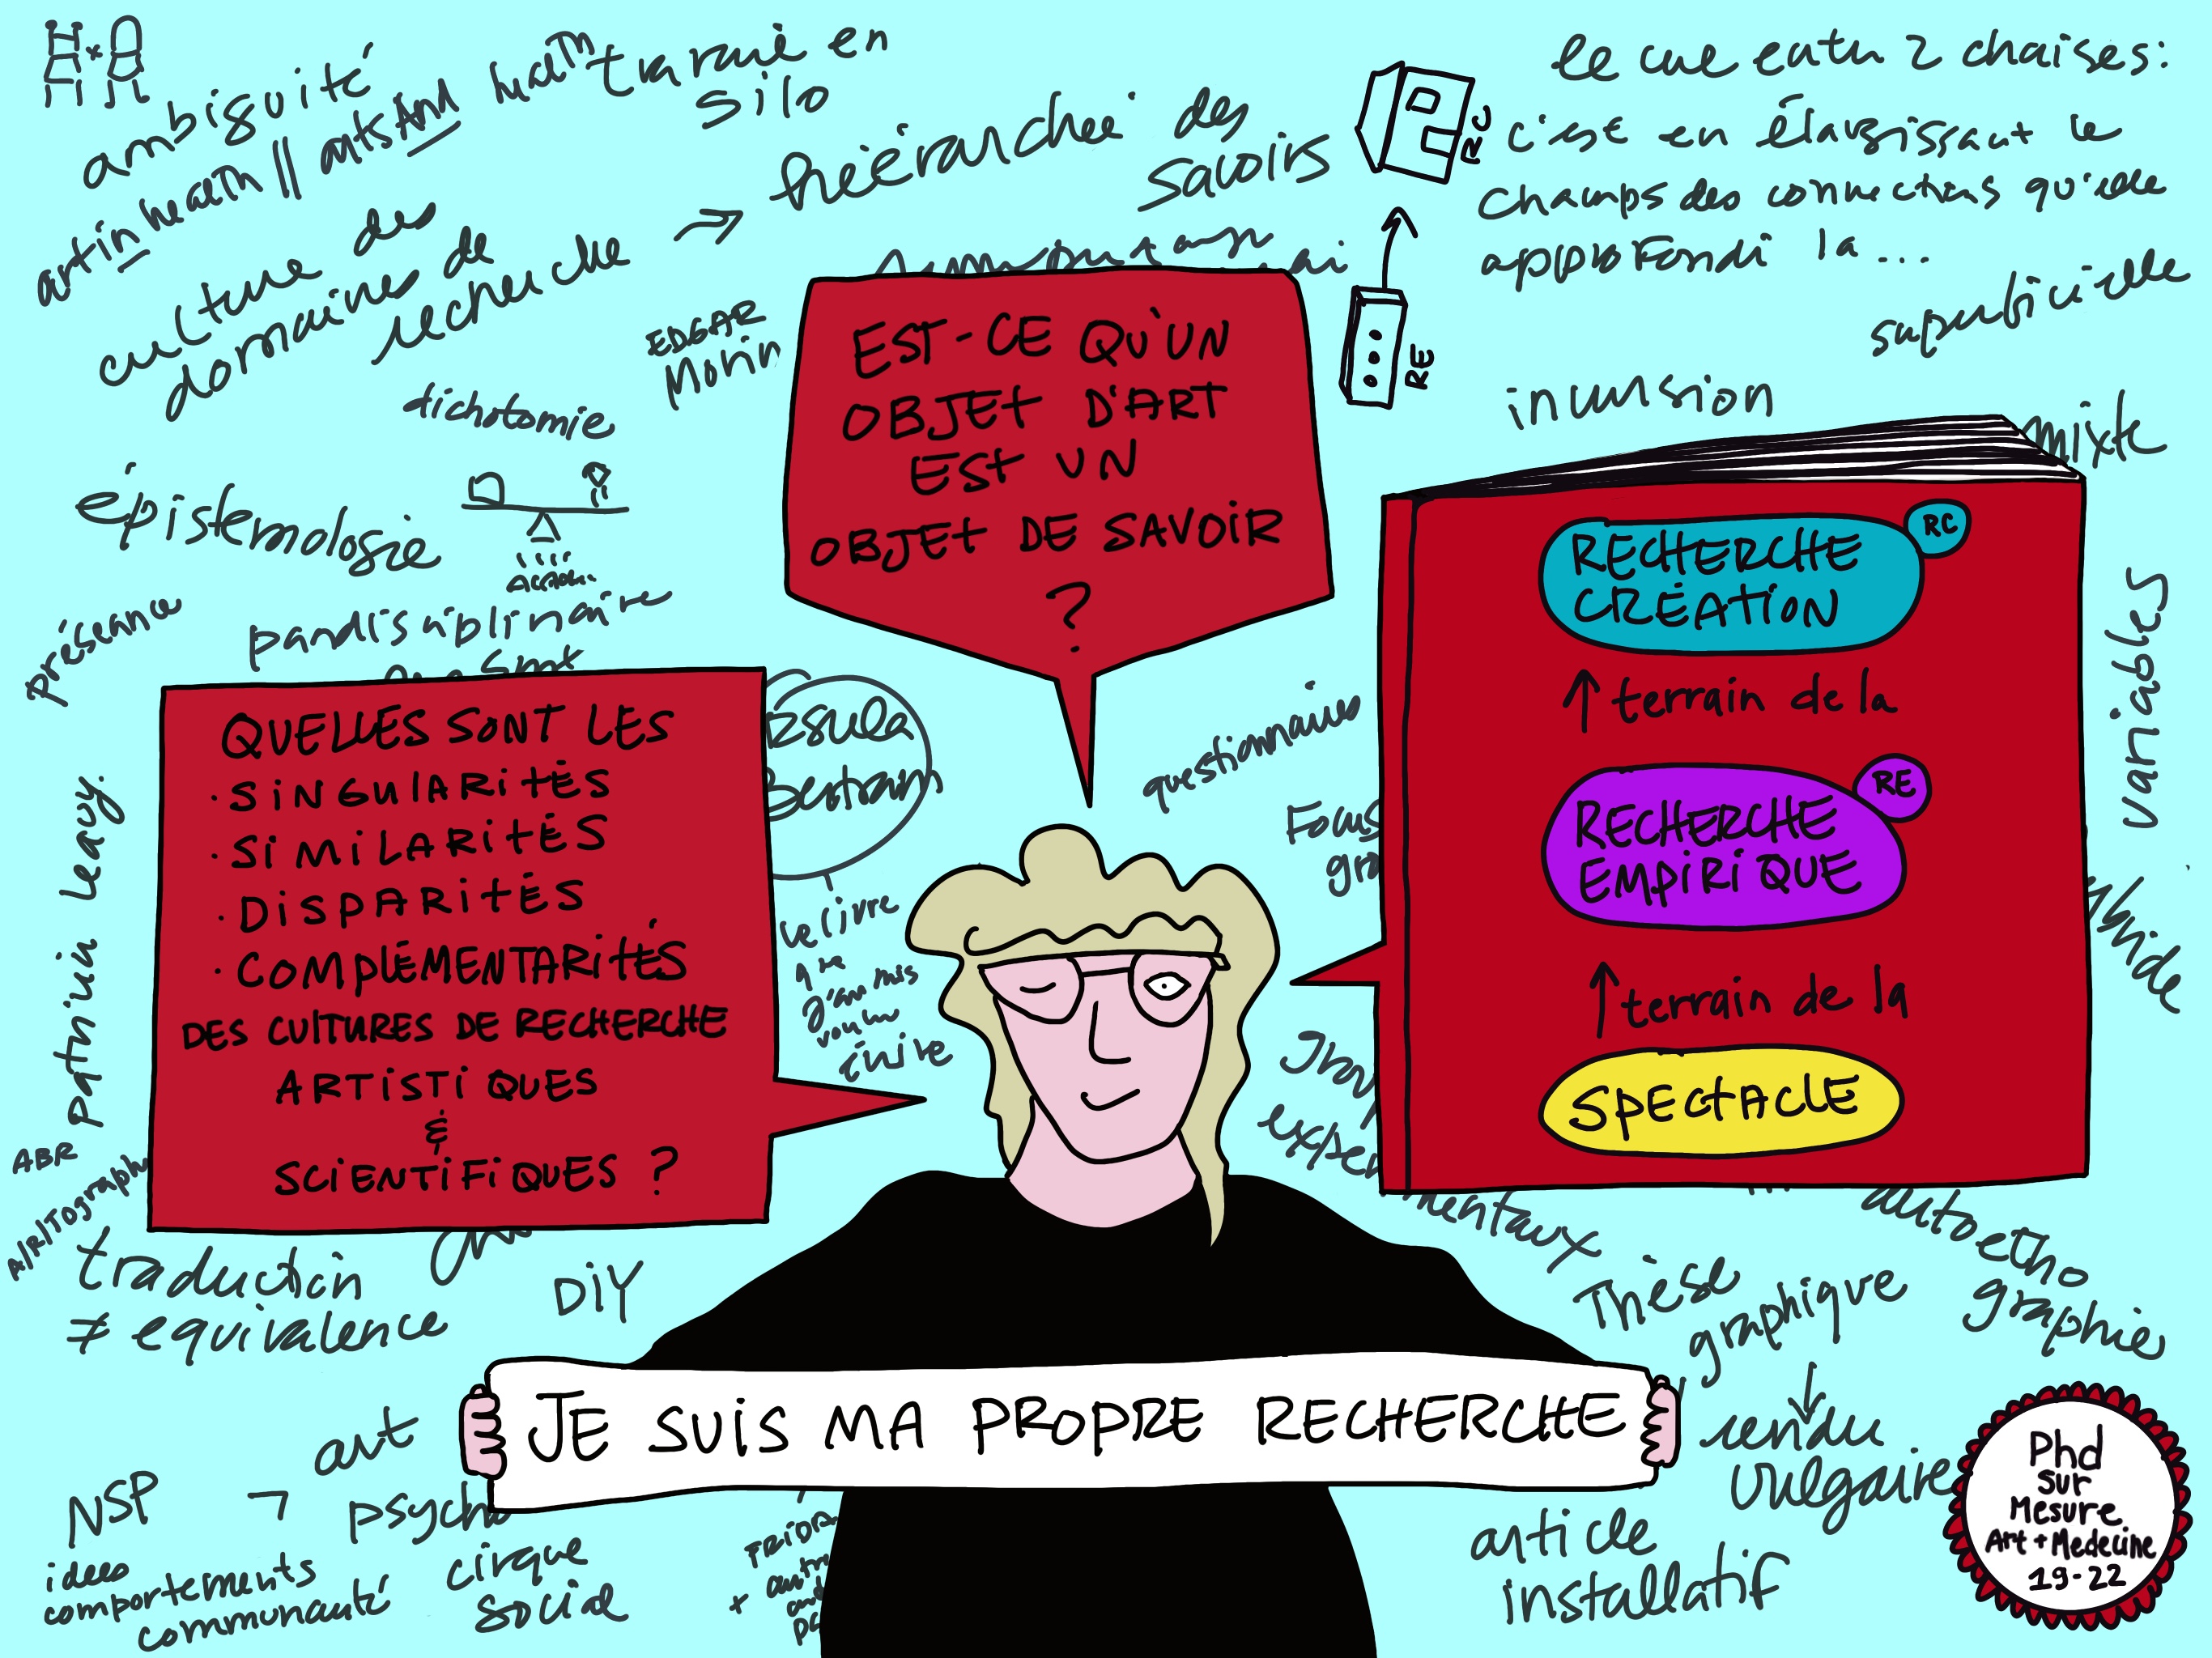 ambiguité
art in health || arts And health
travail en
silo
culture des
domaines de
recherche →
hiérarchie des
savoirs
RC
RE
le cul entre 2 chaises:
c'est en élargissant le
champs des connections qu'elle
approfondi la ...
superficielle
EDGAR
Morin
dichotomie
épistemologie
préséance
pandisciplinaire
EST-CE QU'UN
OBJET D'ART
EST UN
OBJET DE SAVOIR
?
immersion
mixte
variables
RECHERCHE
CRÉATION
RC
↑ terrain de la
RECHERCHE
EMPIRIQUE
RE
↑ terrain de la
SPECTACLE
QUELLES SONT LES
· SINGULARITÉS
· SIMILARITÉS
· DISPARITÉS
· COMPLÉMENTARITÉS
DES CULTURES DE RECHERCHE
ARTISTIQUES
&
SCIENTIFIQUES ?
Bertram
le livre
que
j'aurais
voulu
écrire
questionnaires
Focus
Patricia Leavy
ABR
A/R/Tography
traduction
≠ equivalence
DIY
autoethno
graphie
Thèse
graphique
rendu
vulgaire
article
installatif
JE SUIS MA PROPRE RECHERCHE
art
NSP
psycho
idées
comportements
communauté
cirque
social
FRIDA
Phd
sur
Mesure
Art + Medecine
19-22